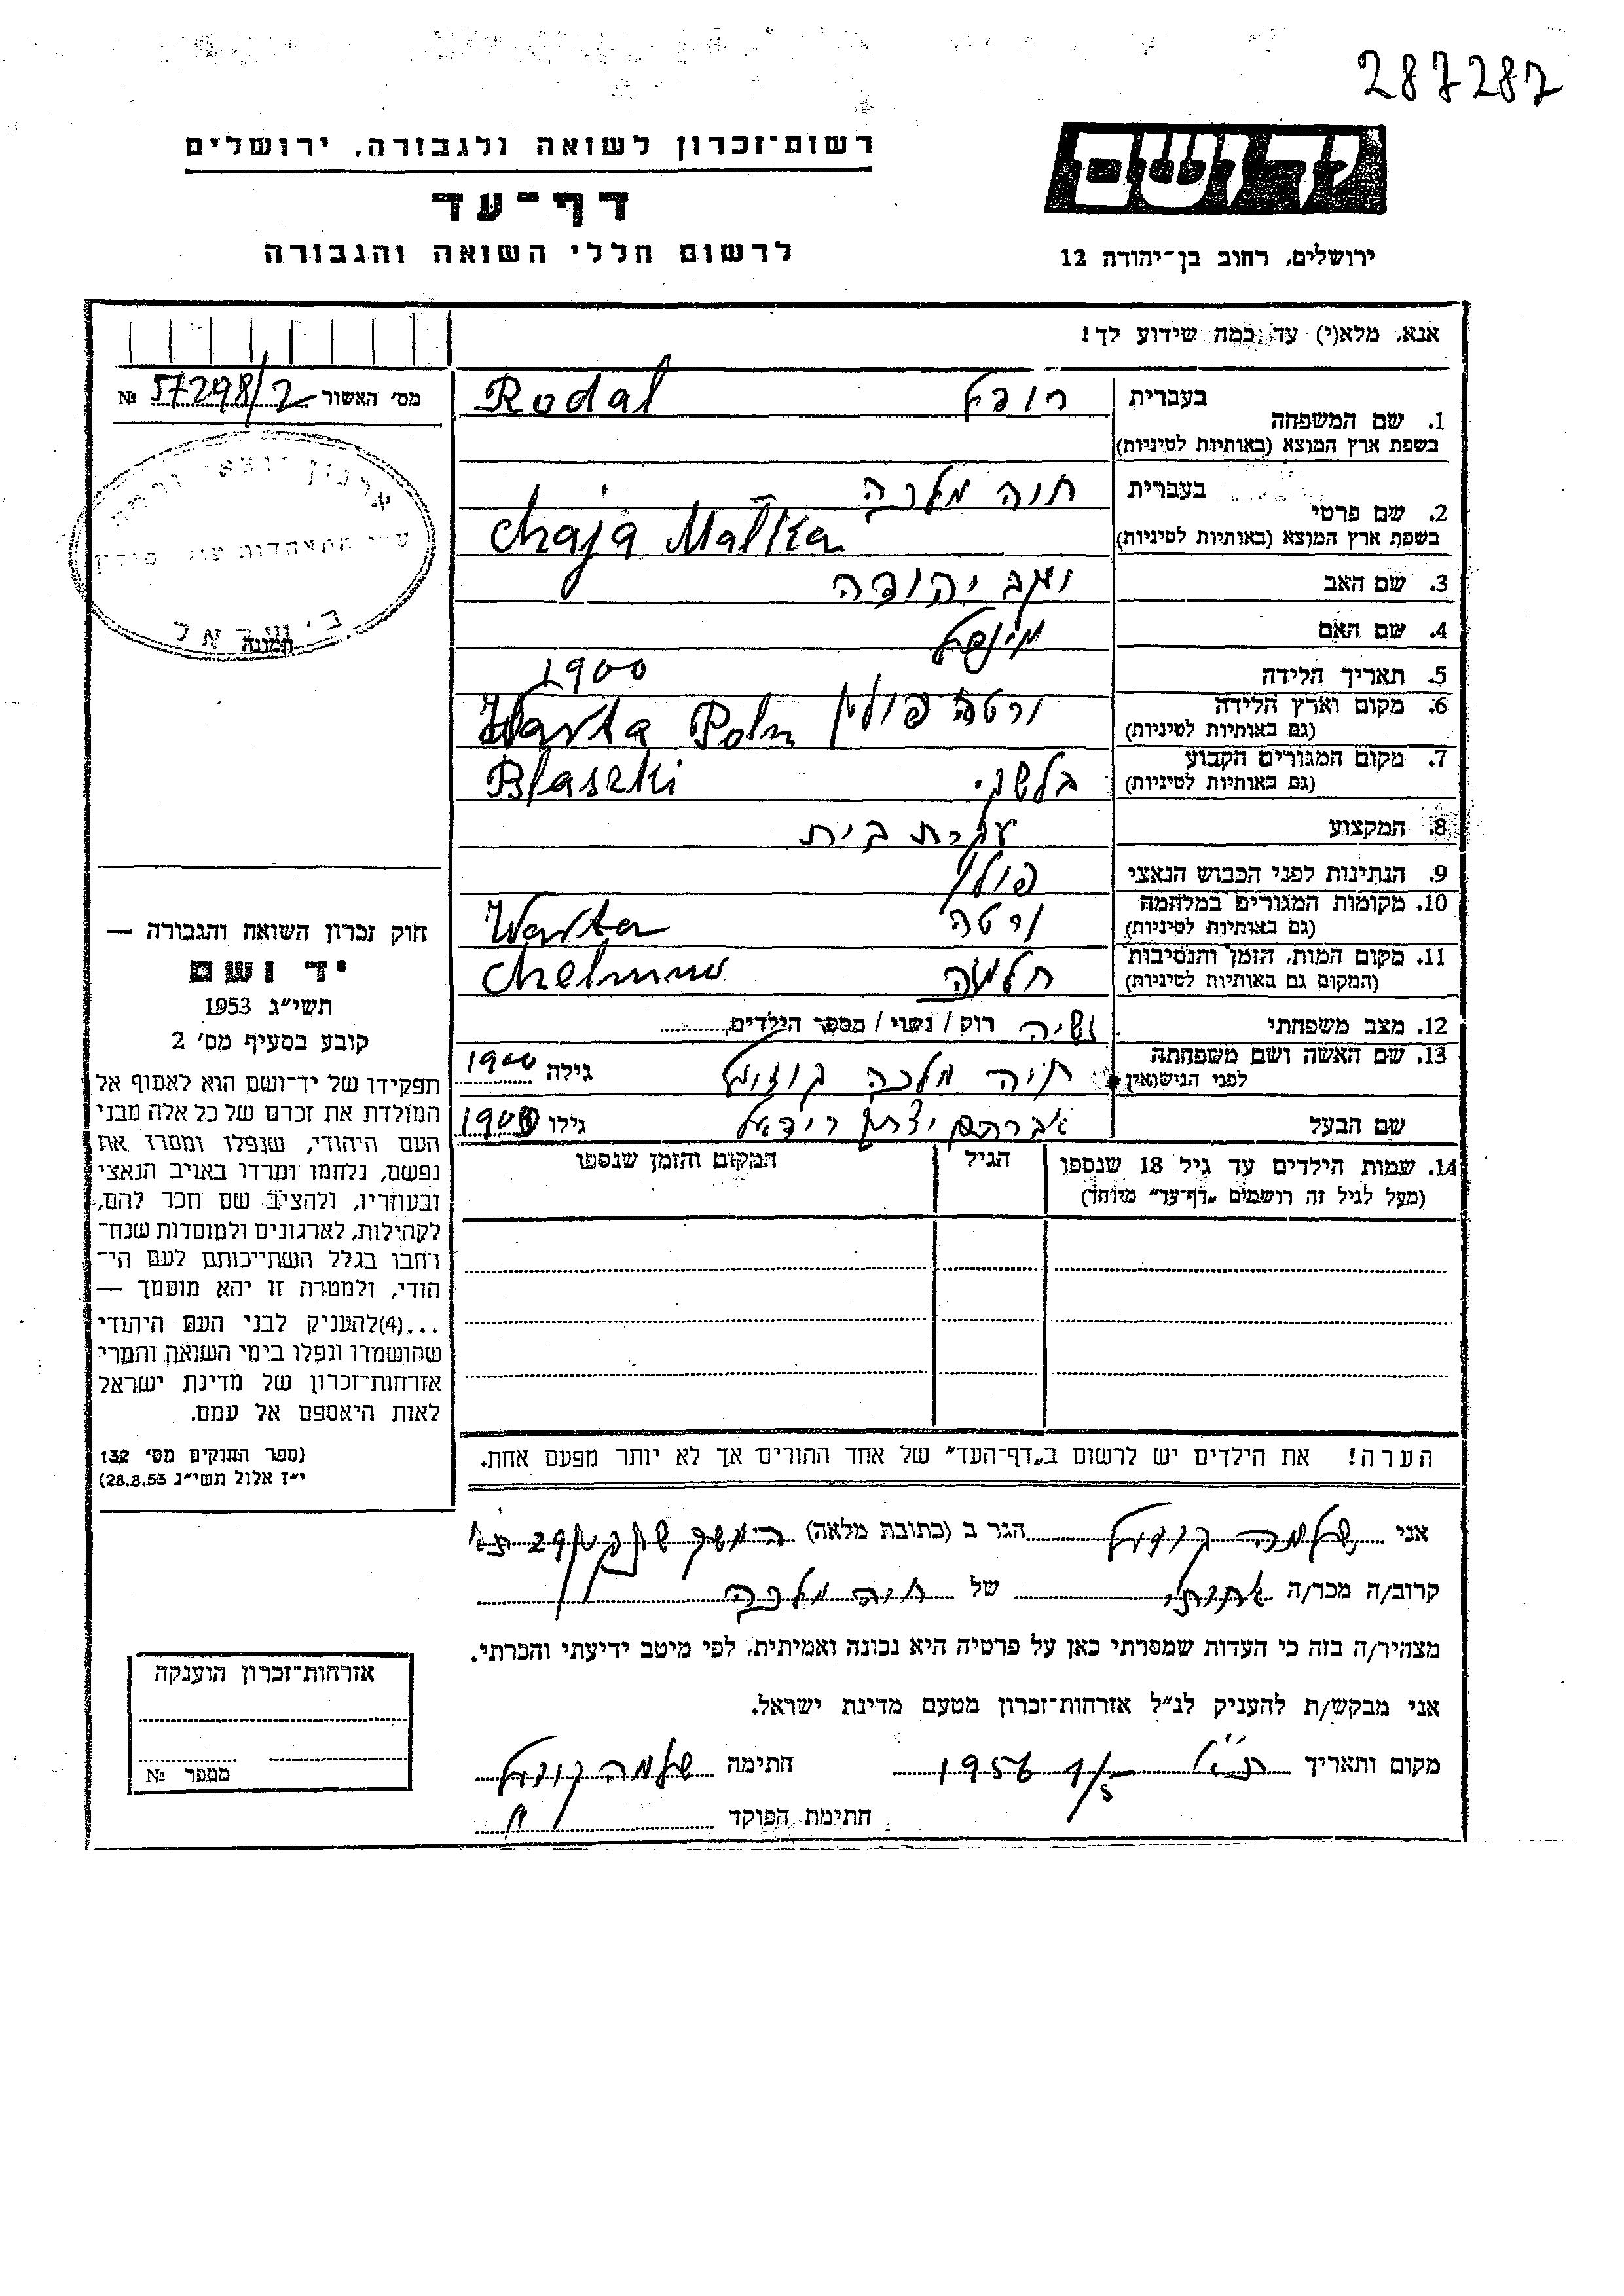 287287
יד ושם
ירושלים, רחוב בן־יהודה 12
רשות־זכרון לשואה ולגבורה, ירושלים
דף־עד
לרשום חללי השואה והגבורה
אנא, מלא(י) עד כמה שידוע לך!
מס׳ האשור 57298/2 №
תמונה
1. שם המשפחה בעברית רודל Rodal
בשפת ארץ המוצא (באותיות לטיניות)
2. שם פרטי בעברית חיה מלכה
בשפת ארץ המוצא (באותיות לטיניות) Chaja Malka
3. שם האב יהודה
4. שם האם
5. תאריך הלידה 1900
6. מקום וארץ הלידה ורטה פולין Warta Poln
(גם באותיות לטיניות)
7. מקום המגורים הקבוע בלשקי Blaszki
(גם באותיות לטיניות)
8. המקצוע עקרת בית
9. הנתינות לפני הכבוש הנאצי פולני
10. מקומות המגורים במלחמה ורטה Warta
(גם באותיות לטיניות)
11. מקום המות, הזמן והנסיבות חלמנה Chelmno
(המקום גם באותיות לטיניות)
12. מצב משפחתי נשואה רוק / נשוי / מספר הילדים
13. שם האשה ושם משפחתה חיה מלכה גילה 1900
לפני הנישואין
שם הבעל אברהם יצחק רודאל גילו 1900
14. שמות הילדים עד גיל 18 שנספו הגיל המקום והזמן שנספו
(מעל לגיל זה רושמים „דף־עד״ מיוחד)
הערה! את הילדים יש לרשום ב„דף־העד״ של אחד ההורים אך לא יותר מפעם אחת.
חוק זכרון השואה והגבורה —
יד ושם
תשי״ג 1953
קובע בסעיף מס׳ 2
תפקידו של יד־ושם הוא לאסוף אל
המולדת את זכרם של כל אלה מבני
העם היהודי, שנפלו ומסרו את
נפשם, נלחמו ומרדו באויב הנאצי
ובעוזריו, ולהציב שם וזכר להם,
לקהילות, לארגונים ולמוסדות שנח־
רבו בגלל השתייכותם לעם הי־
הודי, ולמטרה זו יהא מוסמך —
...(4)להעניק לבני העם היהודי
שהושמדו ונפלו בימי השואה והמרי
אזרחות־זכרון של מדינת ישראל
לאות היאספם אל עמם.
(ספר החוקים מס׳ 132
י״ז אלול תשי״ג 28.8.53)
אני שלמה הגר ב (כתובת מלאה) 29
קרוב/ה מכר/ה אחותי של חיה מלכה
מצהיר/ה בזה כי העדות שמסרתי כאן על פרטיה היא נכונה ואמיתית, לפי מיטב ידיעתי והכרתי.
אני מבקש/ת להעניק לנ״ל אזרחות־זכרון מטעם מדינת ישראל.
מקום ותאריך 1/5 1956 חתימה שלמה
חתימת הפוקד
אזרחות־זכרון הוענקה
מספר №